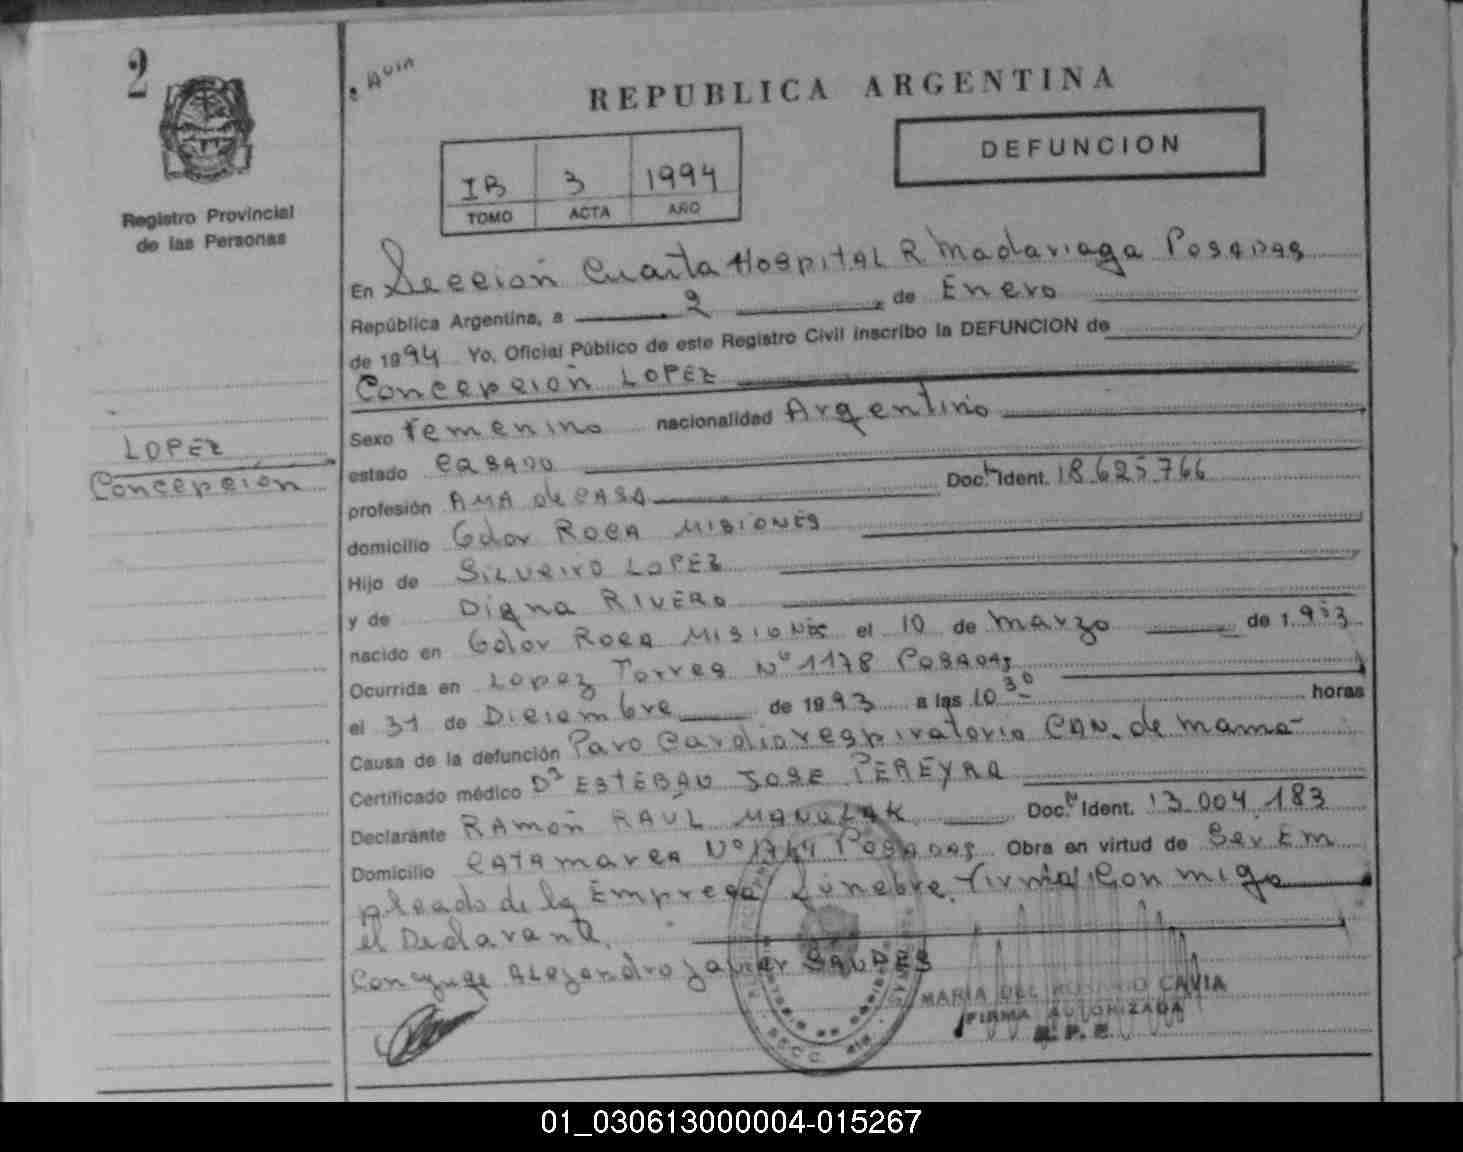 2
Avia
REPUBLICA ARGENTINA
DEFUNCION
IB 3 1994
TOMO ACTA AÑO
Registro Provincial
de las Personas
En Seccion Cuarta Hospital R Madariaga Posadas
República Argentina, a 2 de Enero
de 1994 Yo, Oficial Público de este Registro Civil inscribo la DEFUNCION de
Concepcion LOPEZ
Sexo Femenino nacionalidad Argentino
LOPEZ
Concepcion
estado casado
profesión AMA de CASA Doc. Ident. 18.625.766
domicilio Gdor ROCA MISIONES
Hijo de Silveiro LOPEZ
y de Digna RIVERO
nacido en Gdor Roca MISIONES el 10 de Marzo de 1.9
Ocurrida en Lopez Torres Nº 1178 Posadas
el 31 de Diciembre de 1993 a las 10 30 horas
Causa de la defunción Paro Cardiorespiratorio CAN. de mama
Certificado médico Dr ESTEBAN JOSE PEREYRA
Declarante RAMON RAUL Doc. Ident. 13.004.183
Domicilio CATAMARCA Nº Posadas Obra en virtud de Ser Em
pleado de la Empresa Funebre. Firma Con migo
el Declarante.
Conyuge Alejandro Javier
MARIA DEL ROSARIO CAVIA
FIRMA AUTORIZADA
R. P. P.
01_030613000004-015267